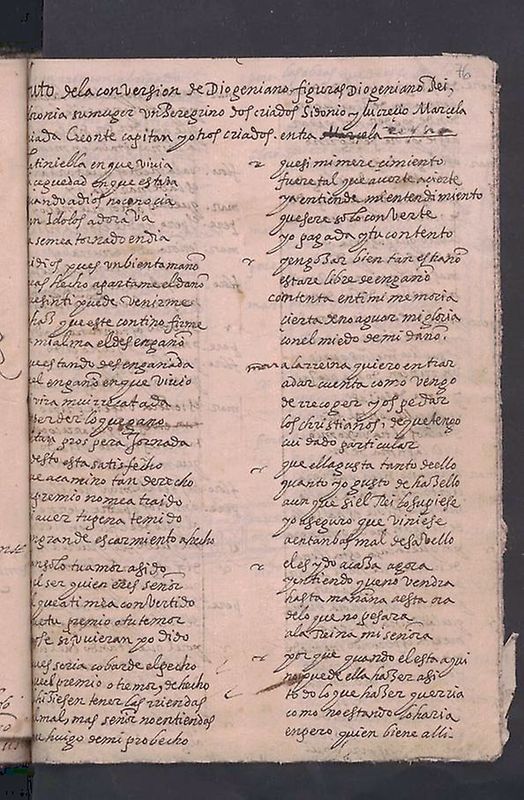 76
auto de la conversion de Diogeniano figuras Diogeniano Rei,
sumuger un Peregrino dos criados Sidonio y lucrecio Marcela
Creonte capitan y otros criados. entra Marcela
en que Vivia
ceguedad en que estava
quando a dios no conocia
Idolos adorava
se mea tornado en dia
dios pues un bien tamaño
has hecho apartame el daño
puede Venirme
que este contino firme
mi alma el desengaño
estando desengañada
el engaño en que Vivio
perder lo que gano
prospera Jornada
desto esta satisfecho
camino tan derecho
premio no mea traido
aver tu pena temido
grande escarmiento a hecho
solo tu amor a sido
ser quien eres señor
que ati mea convertido
premio o tu temor
si quieran podido
seria cobarde el pecho
el premio o temor, de hecho
tener las riendas
mal, mas señor no entiendas
huigo de mi probecho
quesi mi mare cimiento
fuere tal que averte acierte
ya entiende mi entendimiento
que sere solo con verte
yo pagada y tu contento
y engozar bien tan estraño
estare libre de engaño
contenta en ti mi memoria
cierta de no aguar mi gloria
con el miedo de mi daño.
a la reina quiero entrar
a dar cuenta como vengo
de recoger y ospedar
los christianos, de que tengo
cuidado particular
que ella gusta tanto dello
quanto yo gusto de hazello
aunque si el Rei lo supiese
yo aseguro que viniese
a entrambas mal de sabello
el es ydo a caza agora
y entiendo que no vendra
hasta mañana a esta ora
de lo que no pesara
a la Reina mi señora
por que quando el esta aqui
no puede ella hazer asi
todo lo que hazer querria
como no estando lo haria
enpero quien biene alli